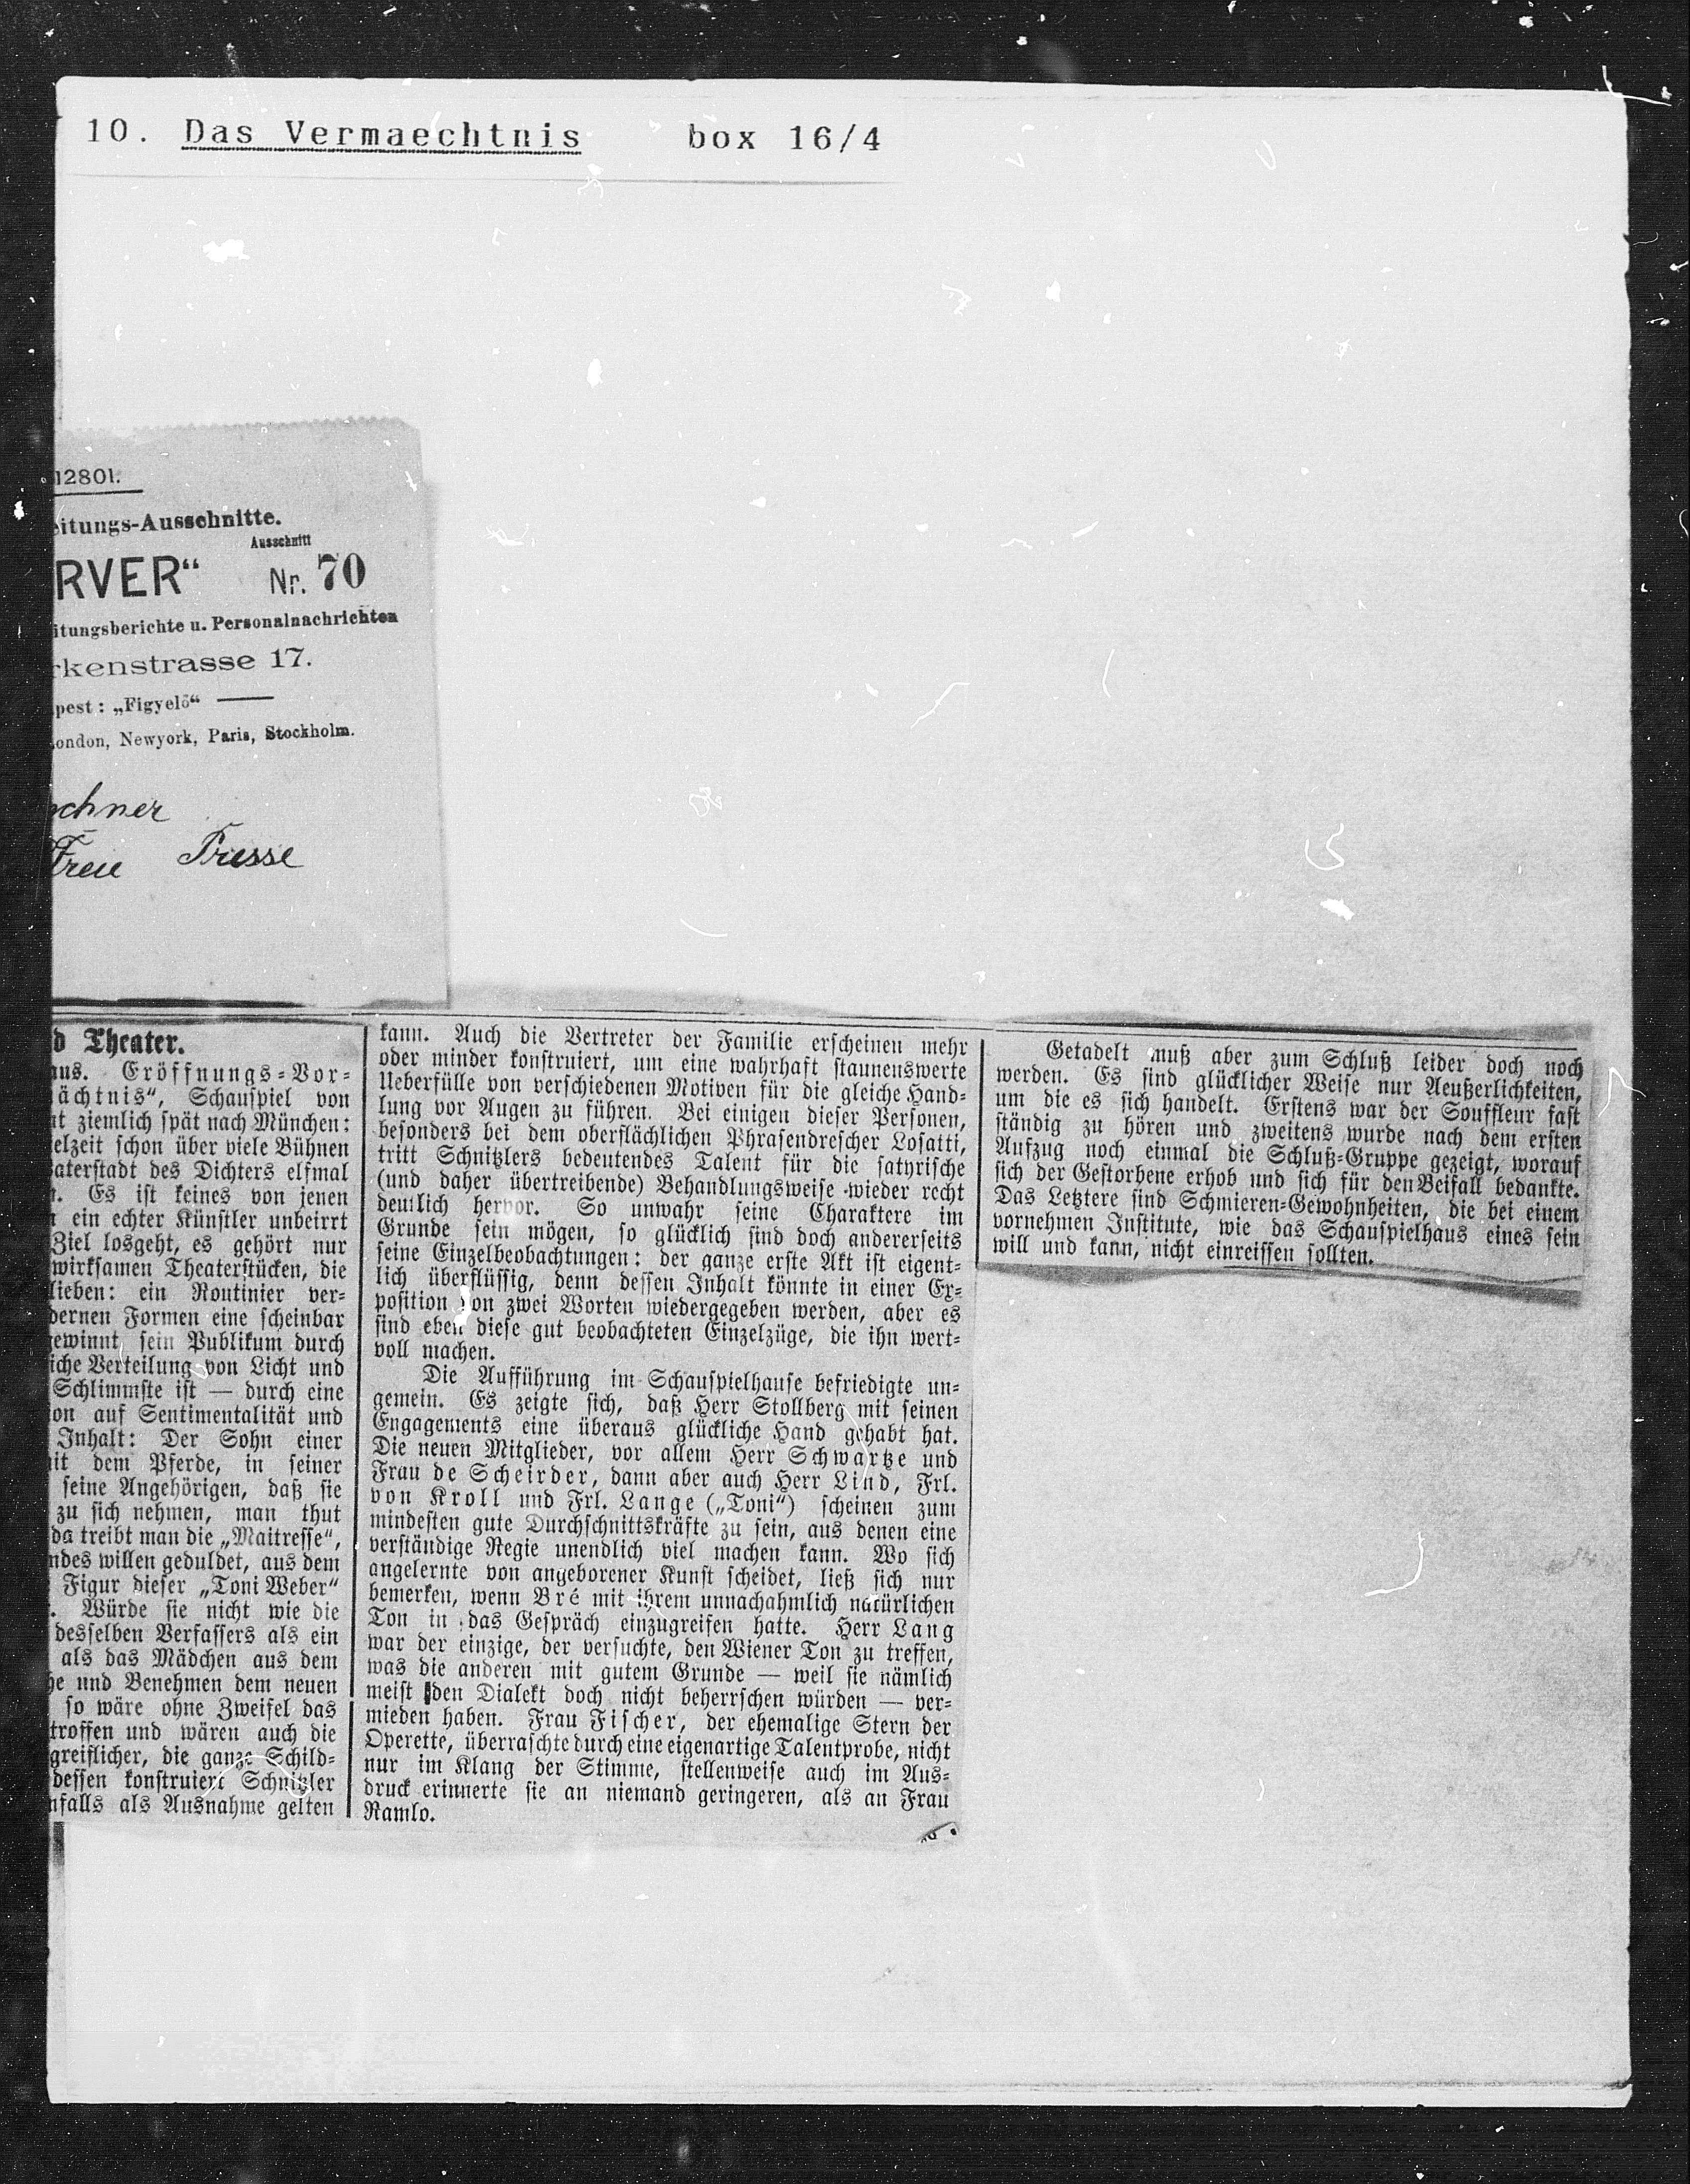 10. Das Vermaechtnis box 16/4
12801.
itungs-Ausschnitte.
Ausschnitt
RVER“ Nr. 70
itungsberichte u. Personalnachrichten
rkenstrasse 17.
pest: „Figyelő“
ondon, Newyork, Paris, Stockholm.
chner
Freie Presse
d Theater.
aus. Eröffnungs-Vor-
ächtnis“, Schauspiel von
t ziemlich spät nach München:
elzeit schon über viele Bühnen
aterstadt des Dichters elfmal
Es ist keines von jenen
ein echter Künstler unbeirrt
Ziel losgeht, es gehört nur
wirksamen Theaterstücken, die
lieben: ein Routinier ver-
dernen Formen eine scheinbar
gewinnt sein Publikum durch
iche Verteilung von Licht und
Schlimmste ist — durch eine
on auf Sentimentalität und
Inhalt: Der Sohn einer
it dem Pferde, in seiner
seine Angehörigen, daß sie
zu sich nehmen, man thut
da treibt man die „Maitresse“,
ndes willen geduldet, aus dem
Figur dieser „Toni Weber“
. Würde sie nicht wie die
desselben Verfassers als ein
als das Mädchen aus dem
he und Benehmen dem neuen
so wäre ohne Zweifel das
troffen und wären auch die
greiflicher, die ganze Schild-
dessen konstruiert Schnitzler
nfalls als Ausnahme gelten
kann. Auch die Vertreter der Familie erscheinen mehr
oder minder konstruiert, um eine wahrhaft staunenswerte
Ueberfülle von verschiedenen Motiven für die gleiche Hand-
lung vor Augen zu führen. Bei einigen dieser Personen,
besonders bei dem oberflächlichen Phrasendrescher Losatti,
tritt Schnitzlers bedeutendes Talent für die satyrische
(und daher übertreibende) Behandlungsweise wieder recht
deutlich hervor. So unwahr seine Charaktere im
Grunde sein mögen, so glücklich sind doch andererseits
seine Einzelbeobachtungen: der ganze erste Akt ist eigent-
lich überflüssig, denn dessen Inhalt könnte in einer Ex-
position von zwei Worten wiedergegeben werden, aber es
sind eben diese gut beobachteten Einzelzüge, die ihn wert-
voll machen.
Die Aufführung im Schauspielhause befriedigte un-
gemein. Es zeigte sich, daß Herr Stollberg mit seinen
Engagements eine überaus glückliche Hand gehabt hat.
Die neuen Mitglieder, vor allem Herr Schwartze und
Frau de Scheirder, dann aber auch Herr Lind, Frl.
von Kroll und Frl. Lange („Toni“) scheinen zum
mindesten gute Durchschnittskräfte zu sein, aus denen eine
verständige Regie unendlich viel machen kann. Wo sich
angelernte von angeborener Kunst scheidet, ließ sich nur
bemerken, wenn Bré mit ihrem unnachahmlich natürlichen
Ton in das Gespräch einzugreifen hatte. Herr Lang
war der einzige, der versuchte, den Wiener Ton zu treffen,
was die anderen mit gutem Grunde — weil sie nämlich
meist den Dialekt doch nicht beherrschen würden — ver-
mieden haben. Frau Fischer, der ehemalige Stern der
Operette, überraschte durch eine eigenartige Talentprobe, nicht
nur im Klang der Stimme, stellenweise auch im Aus-
druck erinnerte sie an niemand geringeren, als an Frau
Ramlo.
Getadelt muß aber zum Schluß leider doch noch
werden. Es sind glücklicher Weise nur Aeußerlichkeiten,
um die es sich handelt. Erstens war der Souffleur fast
ständig zu hören und zweitens wurde nach dem ersten
Aufzug noch einmal die Schluß-Gruppe gezeigt, worauf
sich der Gestorbene erhob und sich für den Beifall bedankte.
Das Letztere sind Schmieren-Gewohnheiten, die bei einem
vornehmen Institute, wie das Schauspielhaus eines sein
will und kann, nicht einreissen sollten.